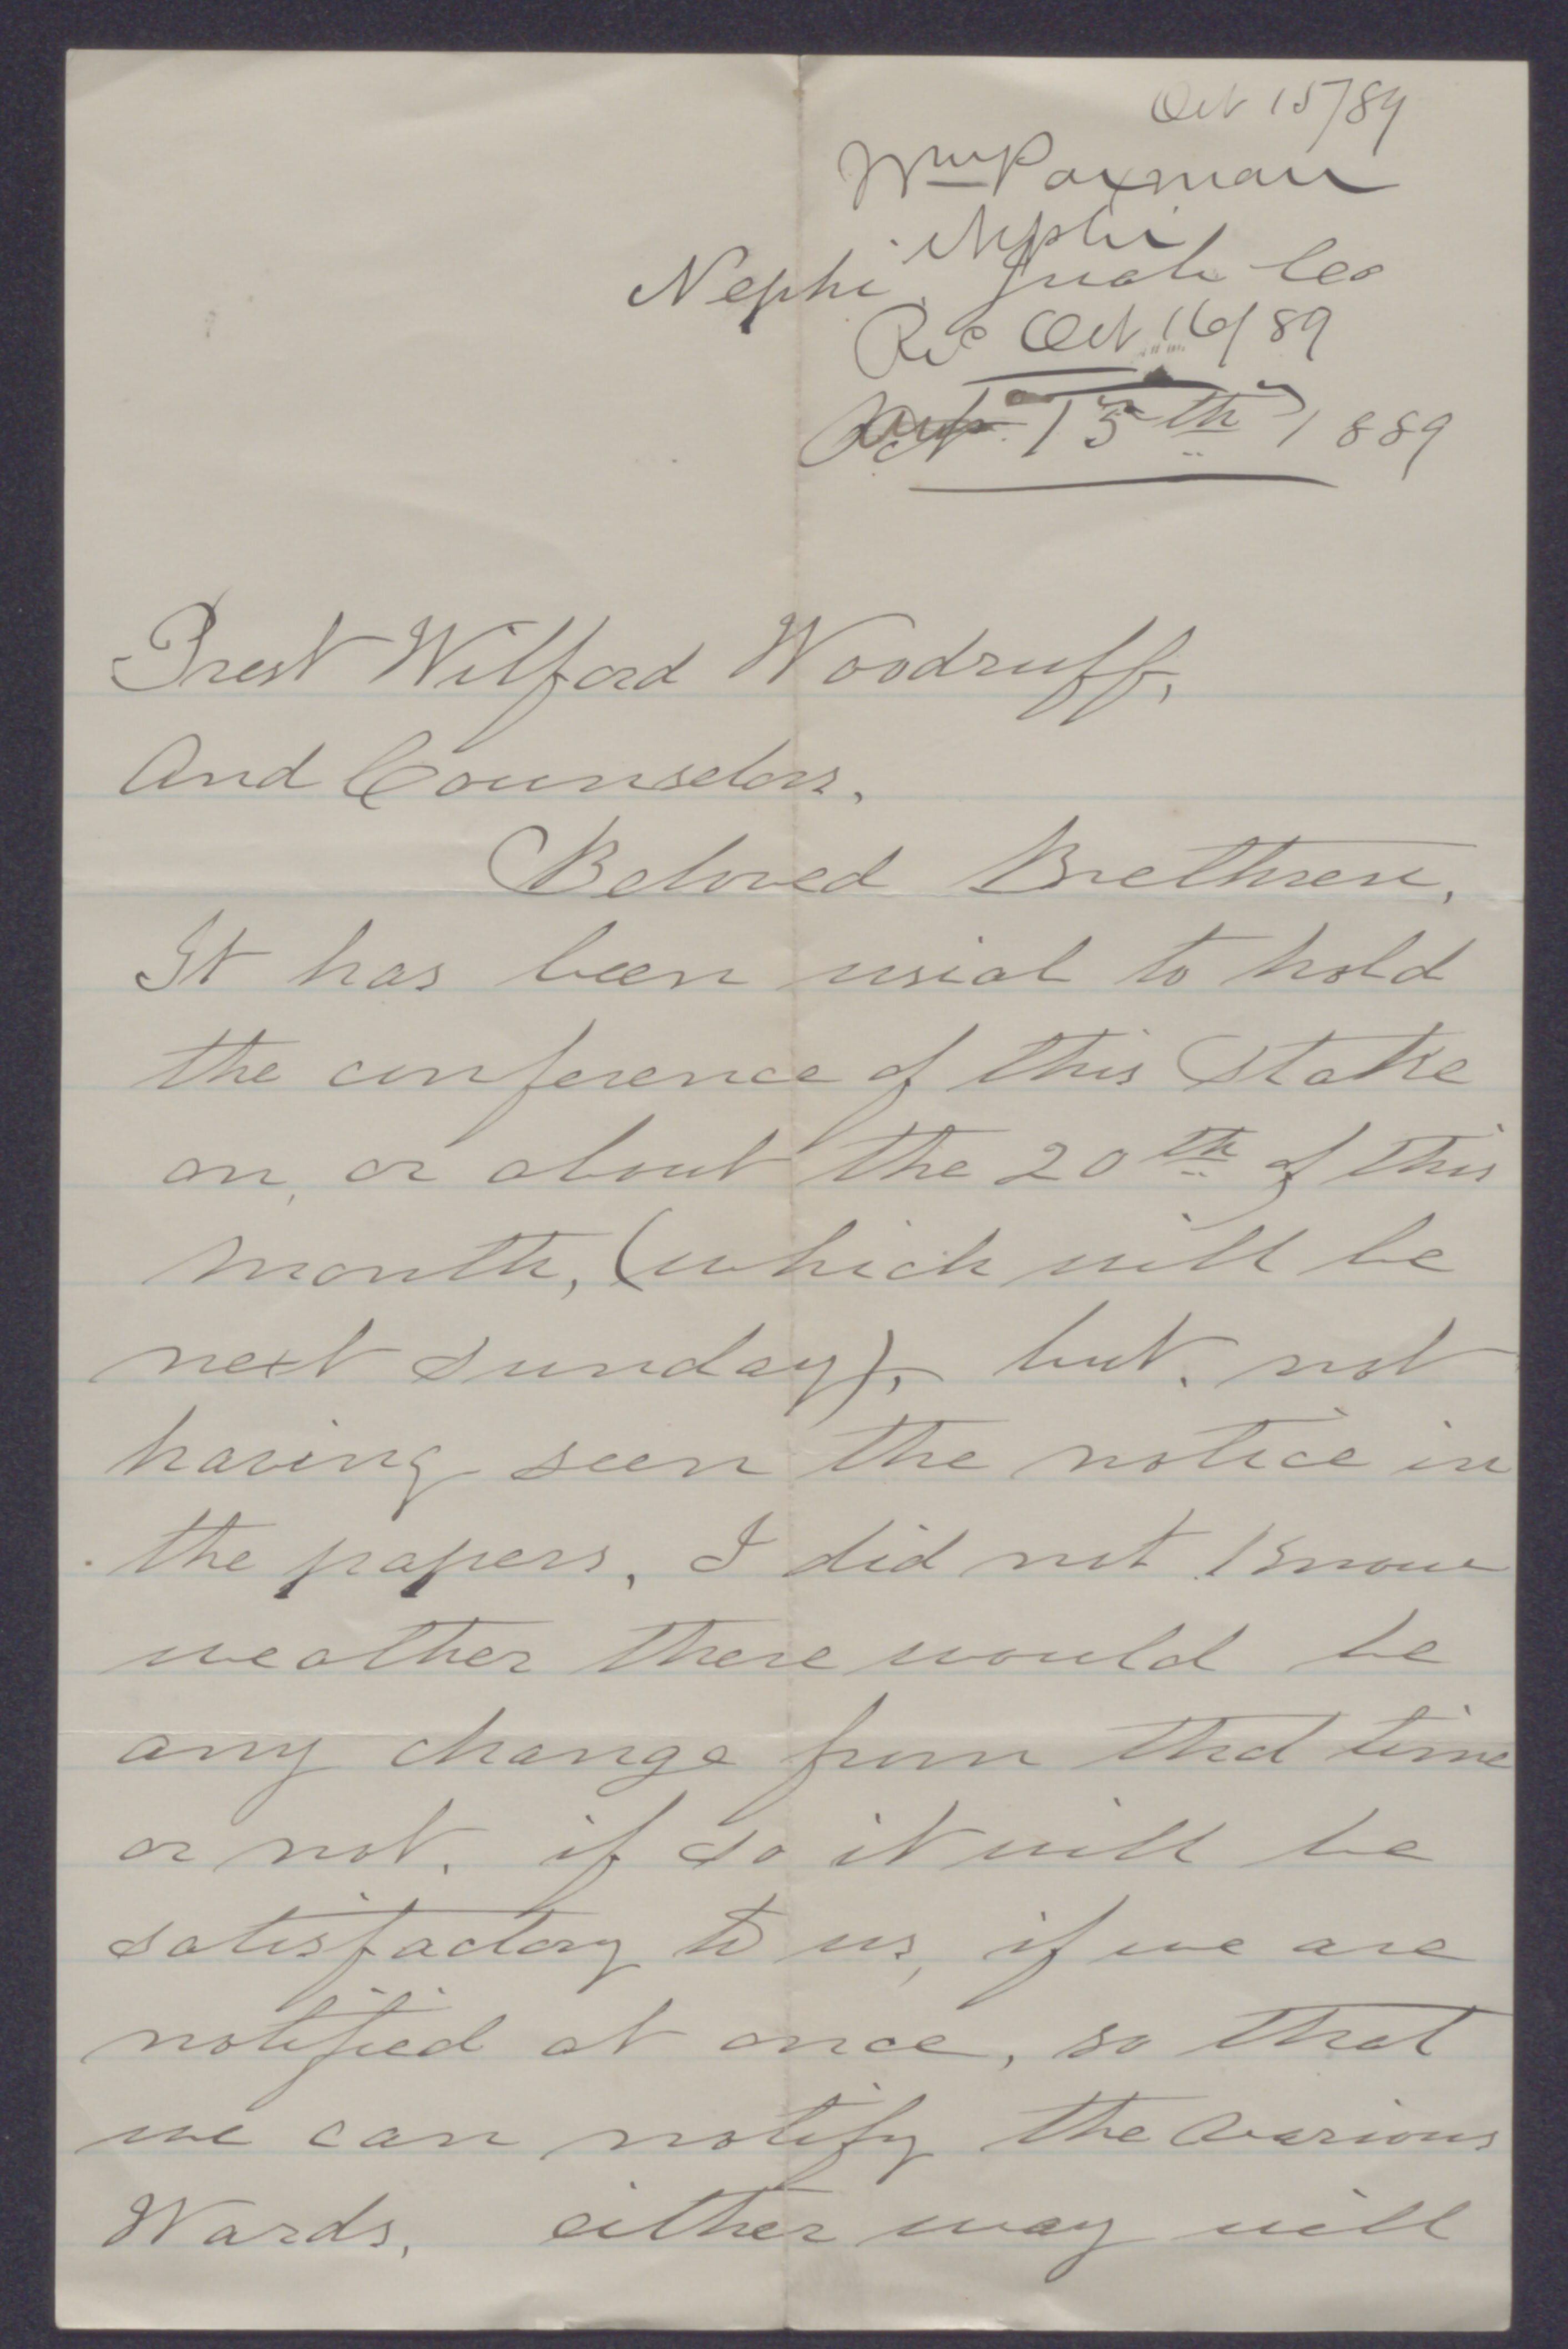 Oct 15/89
Wm Paxman
Nephi
Nephi, Juab Co
Rec Oct 16/89
Oct 15th 1889
Prest Wilford Woodruff,
And Counselors,
Beloved Brethren,
It has been usial to hold
the conference of this Stake
on, or about the 20th of this
month, (which will be
next Sunday), but, not
having seen the notice in
the papers, I did not know
weather there would be
any change from that time
or not, if so it will be
satisfactory to us, if we are
notified at once, so that
we can notify the various
Wards, either way will